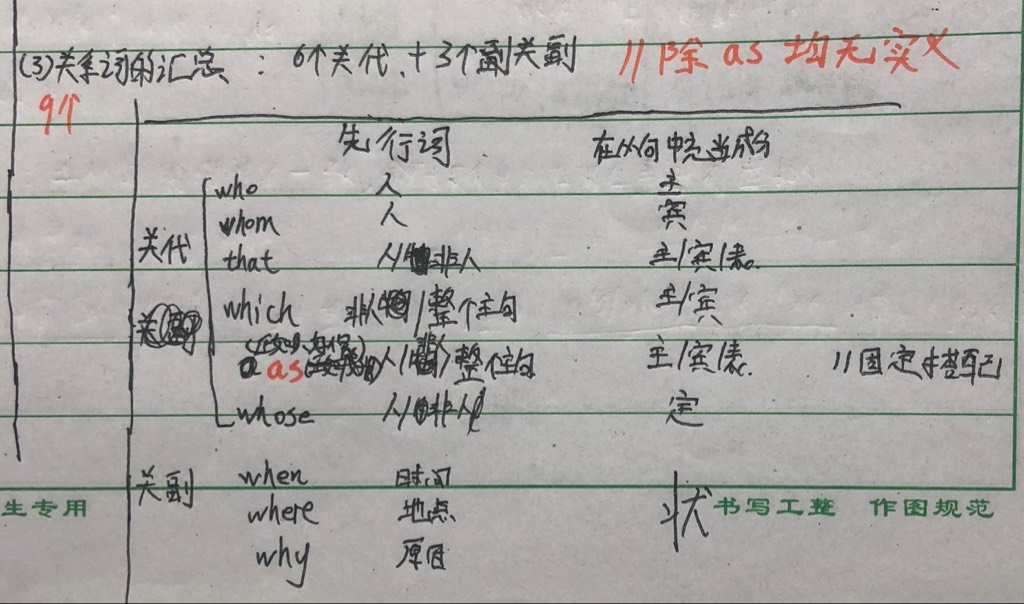 (3)关系词的汇总： 6个关代.+3个关副 //除as均无实义
9个
先行词 在从句中充当成分
who 人 主
whom 人 宾
关代 that 人/非人 主/宾/表.
which 非人/整个主句 主/宾
as 人/非人/整个主句 主/宾/表. //固定搭配
whose 人/非人 定
关副 when 时间
where 地点 状
why 原因
生专用 书写工整 作图规范